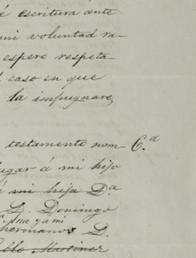 é escritura ante
mi voluntad ra-
espere respeta-
caso en que
la impugnare,
testamento nom- C.ª
lugar á mi hijo
é mi hija Dª
D. Domingo
y á mi
hermano D.
Martinez